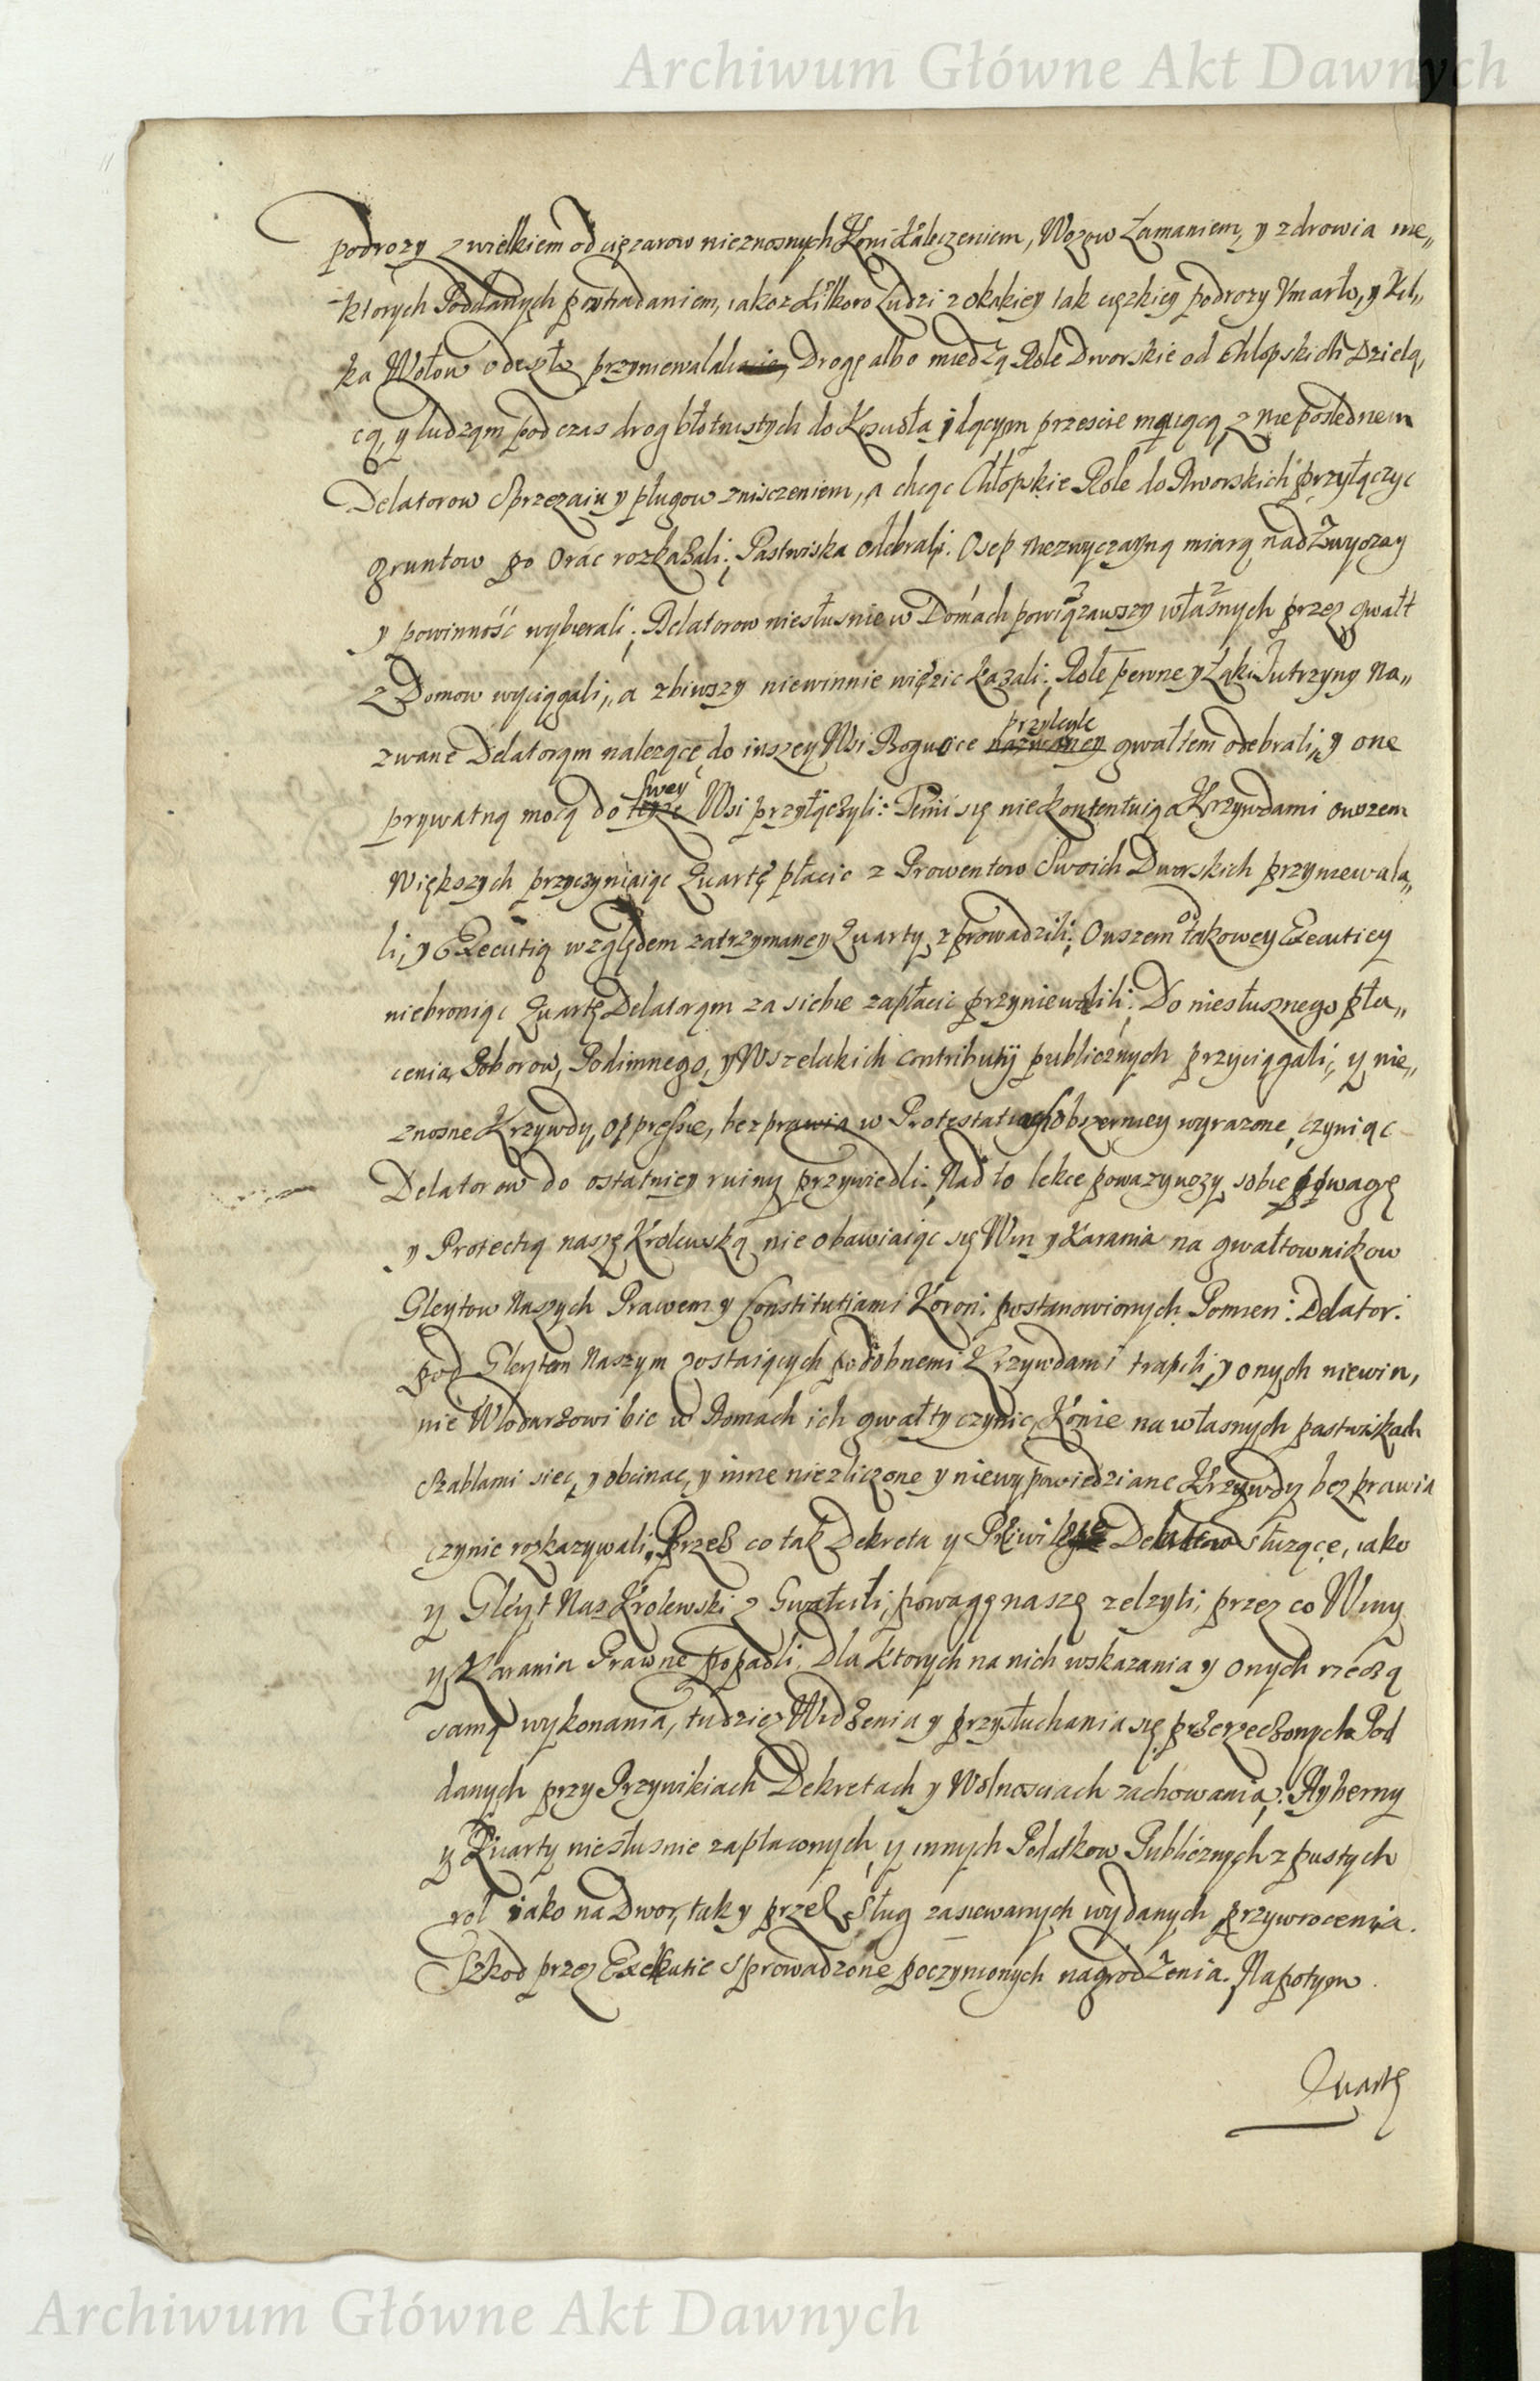 Archiwum Główne Akt Dawnych
podrozy z wielkiem od cięzarow nieznosnych Koni kaleczeniem, Wozow Łamaniem, y zdrowia nie„
ktorych Poddanych postradaniem, iakoz kilkoro Ludzi z okakiey tak cięzkiey podrozy Vmarło, y kil„
ka Wołow odeszło przyniewalali, Drogę albo miedzą Role Dworskie od Chłopskich dzielą,
cą, y ludząm pod czas drog błotnistych do Koscioła idącym przescie maiącą z nie poslednem
Delatorow Sprzezaiu y pługow zniszczeniem, a chcąc Chłopskie Role do Dworskich przyłączyc
gruntow po orac roskazali; Pastwiska odebrali. Osep niezwyczayną miarą nad Zwyczay
y powinność wybierali; Delatorow niesłusnie w Domach powiązawszy własnych przez gwałt
z Domow wyciągali, a zbiwszy niewinnie więzic kazali; Role pewne y Łąki Jutrzyny na„
zwane Delatorąm nalezące do inszey Wsi Bogucice przyległe gwałtem odebrali, y one
prywatną mocą do swey Wsi przyłączyli: Temi się niekontentuiąc Krzywdami owszem
Większych przyczyniaiąc Quartę płacic z Prowentow Swoich Dworskich przyniewala„
li, y Executią względem zatrzymaney Quarty zprowadzili; Owszem od takowey Executiey
niebroniąc Quartę Delatorąm za siebie zapłacic przyniewolili; Do niesłusznego pła„
cenia Poborow, Podimnego, y Wszelakich contributij publicznych przyciągali, y nie„
znosne Krzywdy, oppressie, bezprawia w Protestatiach obszerniey wyrazone, czyniąc
Delatorow do ostatniey ruiny przywiedli. Nad to lekce powazywszy sobie powagę
y Protectią naszę Krolewską nie obawiaiąc się Win y Karania na gwałtownikow
Gleytow Naszych Prawem y Constitutiami Koron: postanowionych. Pomien: Delator:
pod Gleytem Naszym zostaiących podobnemi Krzywdami trapili, y onych niewin,
nie Włodarzowi bic w Domach ich gwałty czynic, Konie na własnych pastwiskach
Szablami siec, y obcinac, y inne niezliczone y niewypowiedziane Krzywdy bezprawia
czynic rozkazywali, Przez co tak Dekreta y Priwilegie Delatorow słuzące, iako
y Gleyt Nasz Krolewski z Gwałcili, powagę naszę zelzyli, przez co Winy
y Karania Prawne popadli. Dla ktorych na nich wskazania y onych rzeczą
samą wykonania, tudziez Widzenia y przysłuchania się przerzeczonych Pod
danych przy Przywilciach Dekretach y Wolnosciach zachowania: Hyberny
y Quarty niesłusnie zapłaconych, y innych Podatkow Publicznych z pustych
rol iako na Dwor, tak y przez Sług zasiewanych wydanych przywrocenia.
Szkod przez Exekutie sprowadzone poczynionych nagrodzenia. Napotym
Quartę
Archiwum Główne Akt Dawnych